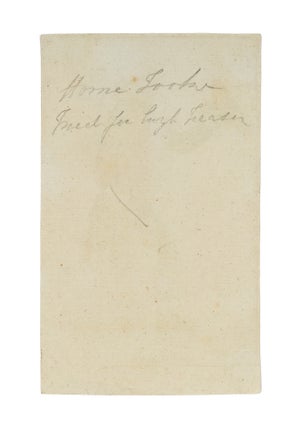 Horne Tooke
Tried for high Treason